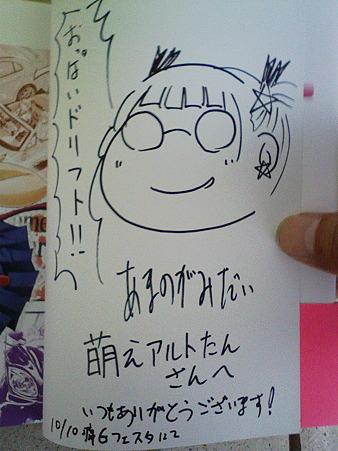 そ
おっぱいドリフト!!
へ
あまのがみだい
萌えアルトたん
さんへ
いつもありがとうございます!
10/10 痛Gフェスタにて